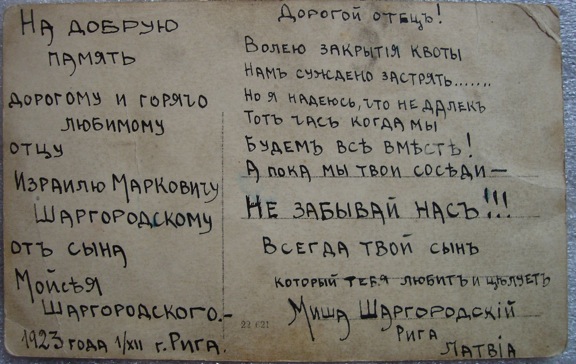 На добрую
память
дорогому и горячо
любимому
отцу
Израилю Марковичу
Шаргородскому
отъ сына
Мойсѣя
Шаргородского.-
1923 года 1/XII г. Рига.
Дорогой отецъ!
Волею закрытія квоты
намъ суждено застрять.......
Но я надеюсь, что не далекъ
тотъ часъ когда мы
будемъ всѣ вмѣстѣ!
А пока мы твои сосѣди—
Не забывай насъ!!!
Всегда твой сынъ
который тебя любитъ и цѣлуетъ
Миша Шаргородскій
Рига
Латвія
22 621